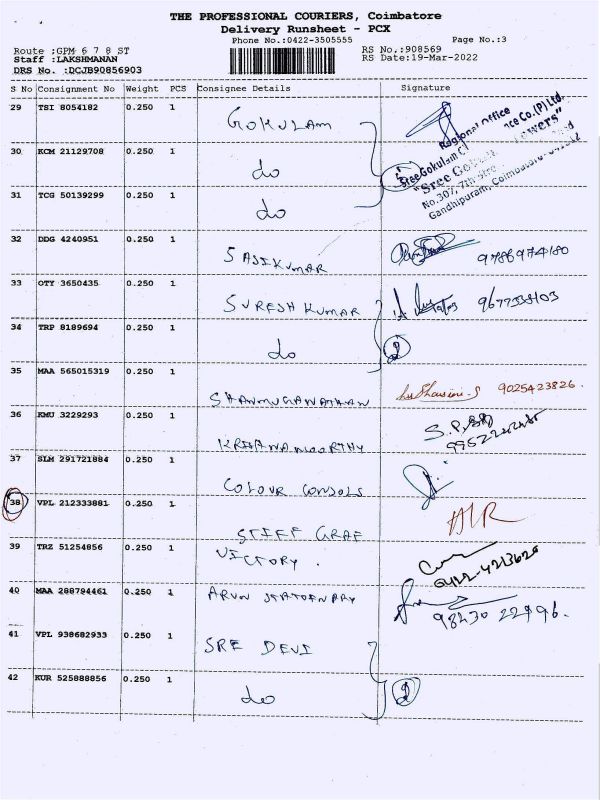 THE PROFESSIONAL COURIERS, Coimbatore
Delivery Runsheet - PCX
Phone No.:0422-3505555 Page No.:3
Route :GPM 6 7 8 ST RS No,:908569
Staff :LAKSHMANAN RS Date:19-Mar-2022
DRS No. :DCJB90856903
S No Consignment No Weight PCS Consignee Details Signature
29 TSI 8054182 0.250 1 GOKULAM
Regional Office
Sree Gokulam nce Co.(P)Ltd.
"Sree Towers"
No.307, 7th
Gandhipuram, Coimbatore
30 KCM 21129708 0.250 1 do
31 TCG 50139299 0.250 1 do
32 DDG 4240951 0.250 1 SASIKUMAR 9786974180
33 OTY 3650435 0.250 1 SURESH KUMAR
34 TRP 8189694 0.250 1 do 2
35 MAA 565015319 0.250 1 SHANMUGANATHAN 9025423826.
36 KMU 3229293 0.250 1 KRISHNAMOORTHY
37 SLM 291721884 0.250 1 COLOUR
38 VPL 212333881 0.250 1 STEFF GRAF
39 TRZ 51254856 0.250 1 VICTORY. 0422-4213620
40 MAA 288794461 0.250 1 ARUN 98430 22996.
41 VPL 938682933 0.250 1 SRE DEVI
42 KUR 525888856 0.250 1 do 2